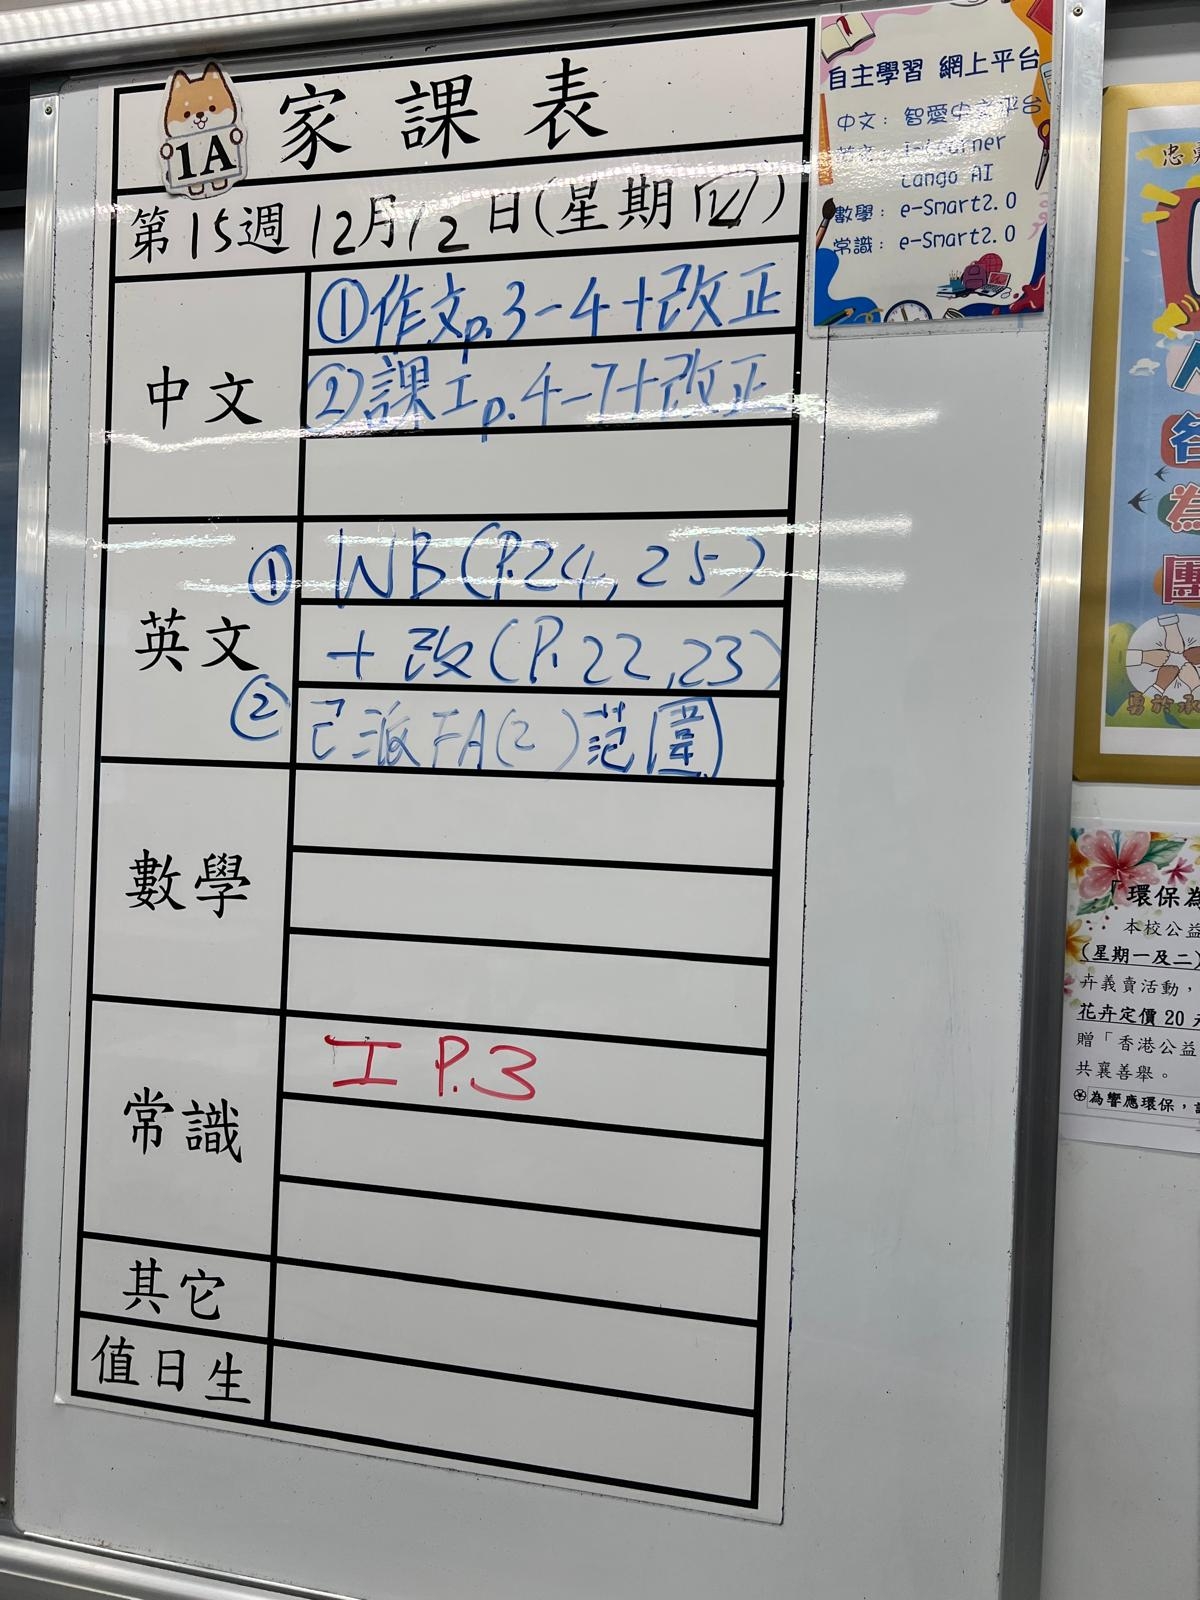 1A
家課表
第15週12月12日(星期四)
中文
①作文p.3-4+改正
②課工p.4-7+改正
英文
① WB(P.24, 25)
+改(P.22,23)
② 已派FA(2)範圍
數學
常識
工 P.3
其它
值日生
自主學習 網上平台
中文: 智愛中文平台
英文: I-Learner
Lango AI
數學: e-Smart2.0
常識: e-Smart2.0
忠
各
為
團
勇於承
「環保為
本校公益
(星期一及二)
卉義賣活動，
花卉定價20
贈「香港公益
共襄善舉。
為響應環保，